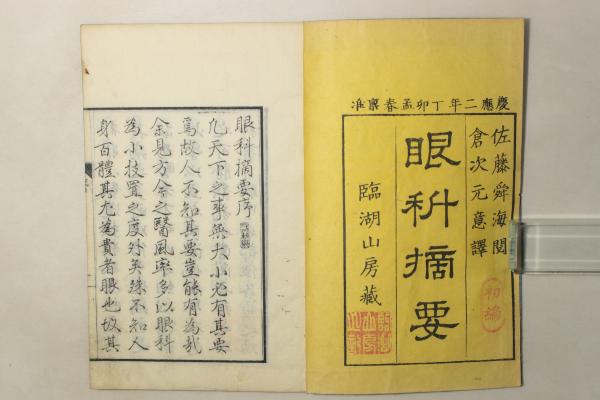 慶應二年丁卯孟春稟准
佐藤舜海閲
倉次元意譯
眼科摘要
初編
臨湖山房藏
眼科摘要序
凢天下之事無大小必有其要
焉故人不知其要豈能有為哉
余見方今之醫風率多以眼科
為小技置之度外矣殊不知人
身百體其尤為貴者眼也故其